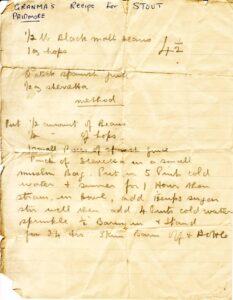 GRANMA'S Recipe for STOUT
PRIDMORE
1/2 lb Black malt beans
1 oz hops
4 1/2
spanish juice
1/2 oz
method
Put 1/2 amount of Beans
1/2 " of hops.
small Piece of juice
Pinch of in a small
muslin Bag. Put in 5 Pints cold
water & simmer for 1 Hour then
strain, in bowl, add sugar
stir well then add 4 Pints cold water
sprinkle 1/2 & stand
for 24 hrs Skim Barm off & Bottle